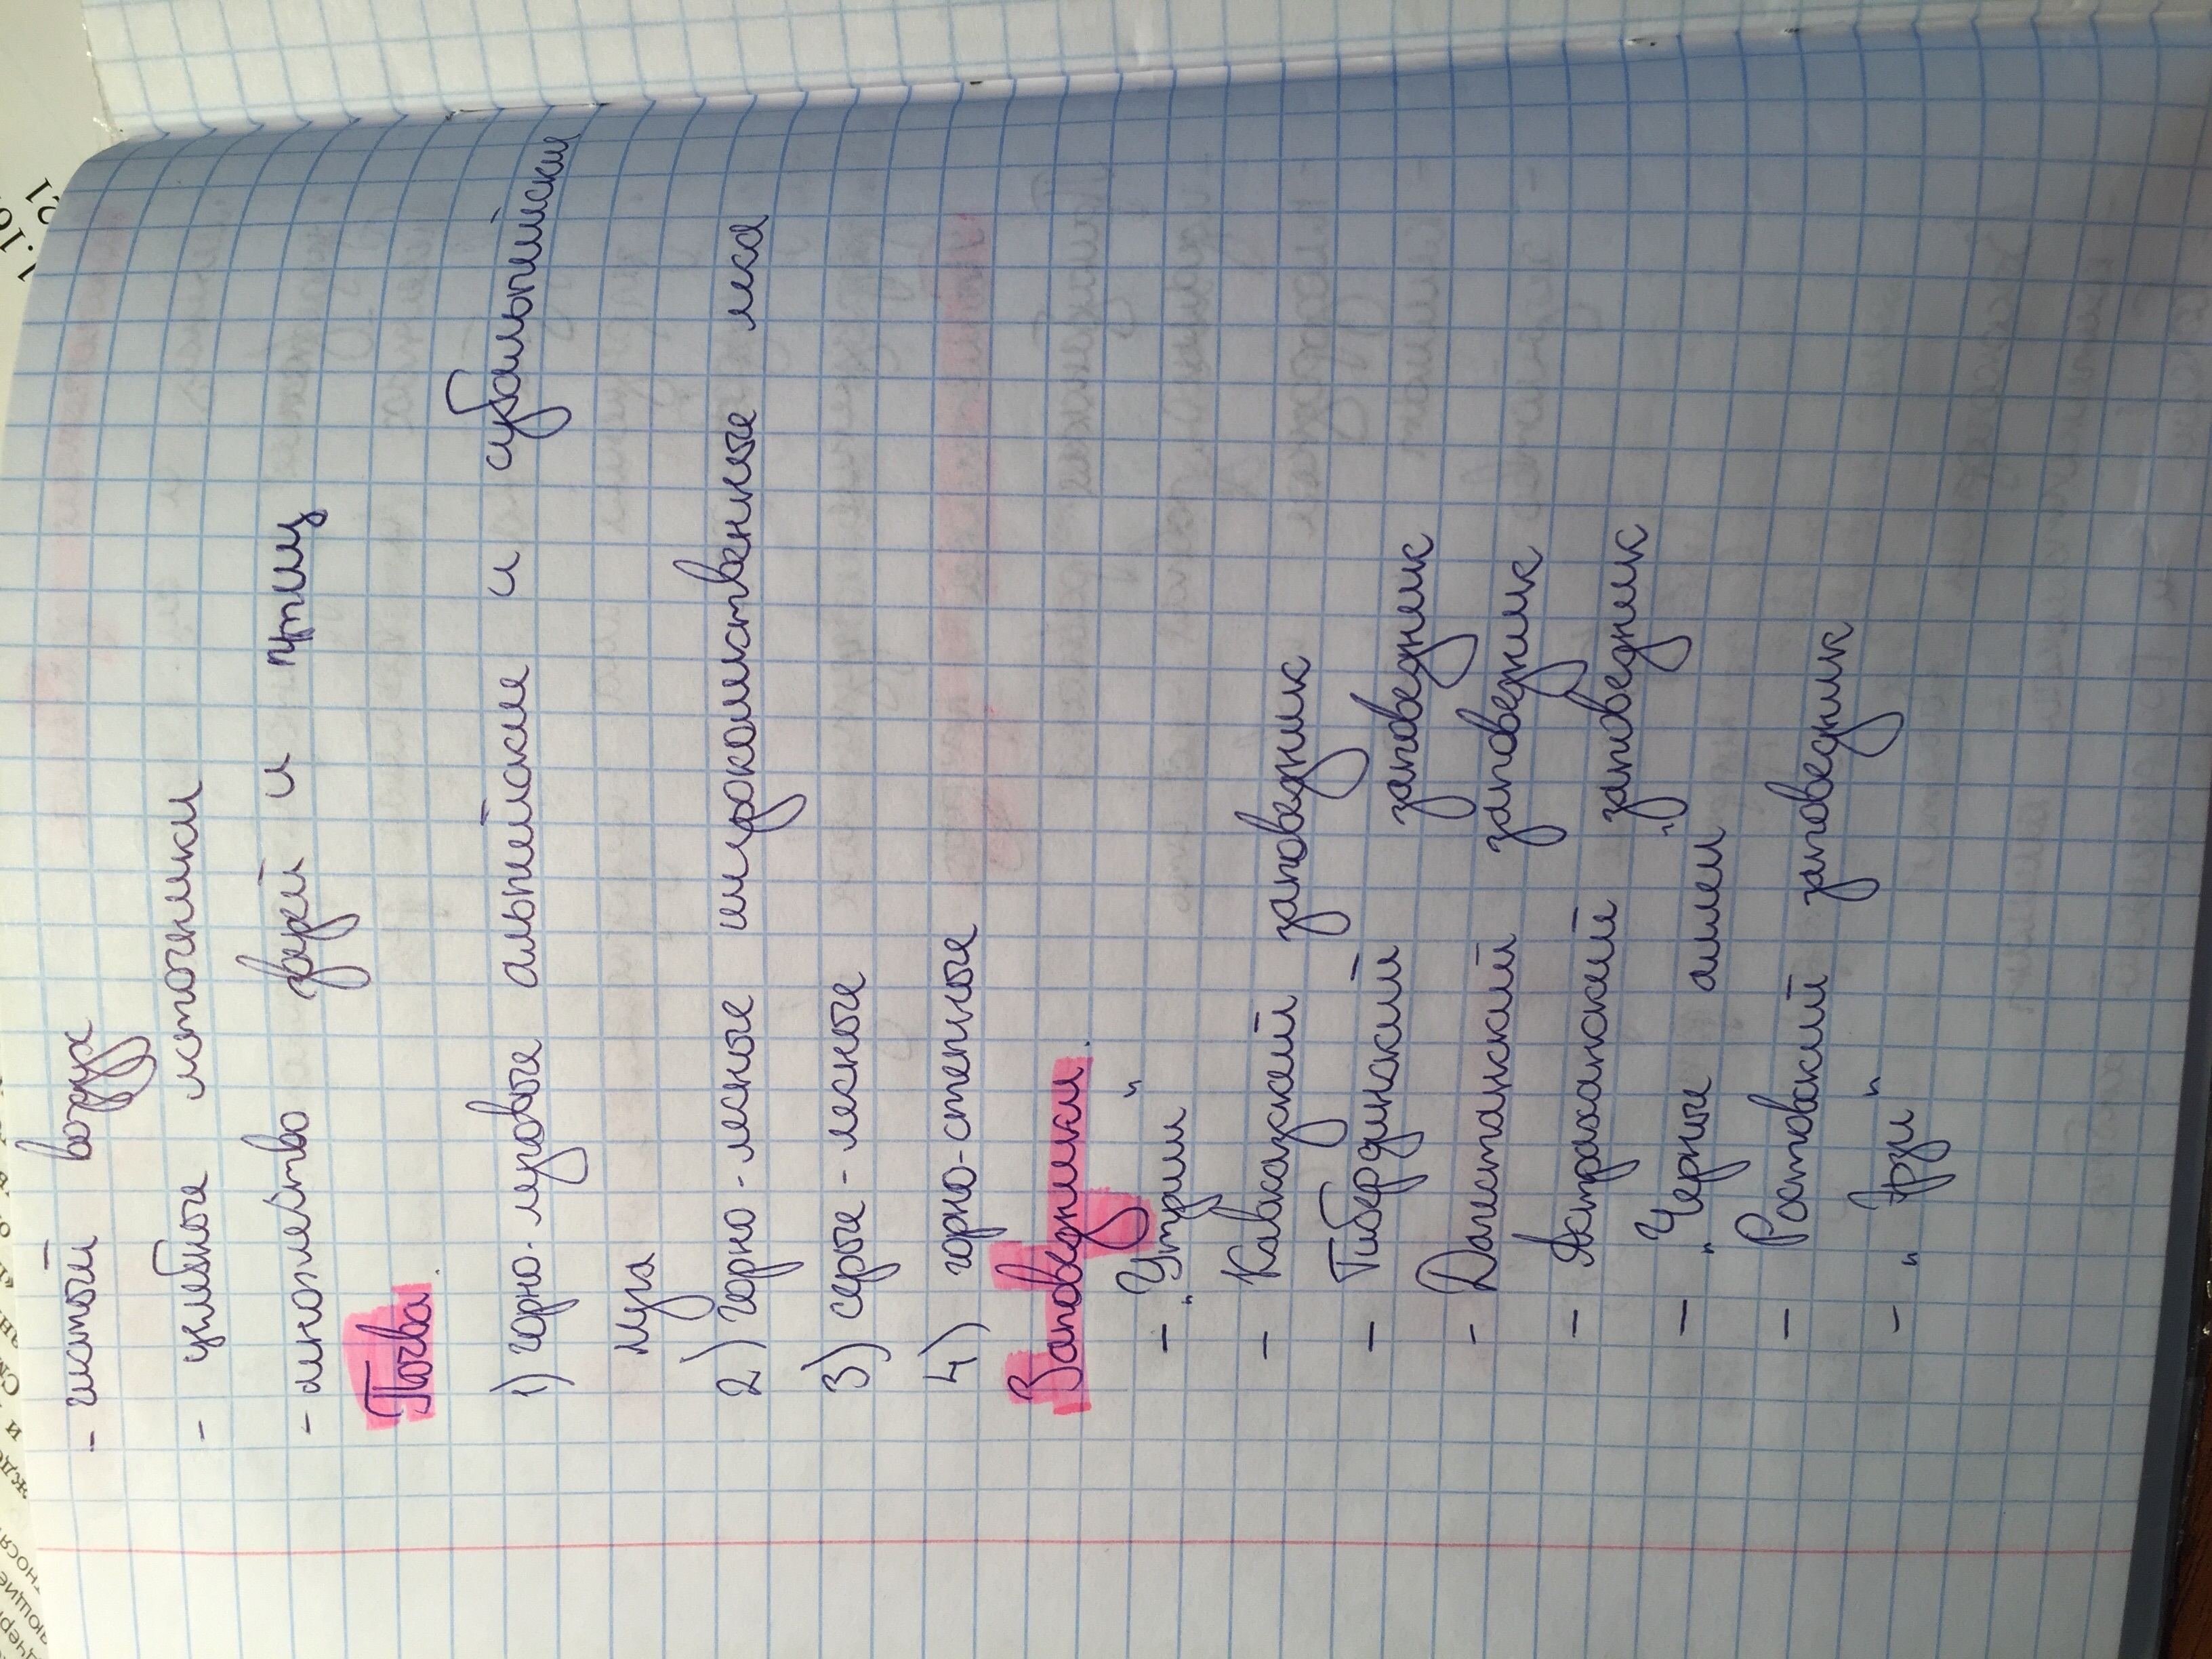 - чистый воздух
- целебные источники
- множество зверей и птиц
Почва.
1) горно-луговые альпийские и субальпийские
луга
2) горно-лесные широколиственные леса
3) серые-лесные
4) горно-степные
Заповедники.
- "Утриш"
- Кавказский заповедник
- Тибердинский заповедник
- Дагестанский заповедник
- Астраханский заповедник
- "Черные земли"
- Ростовский заповедник
- "Эрзи"